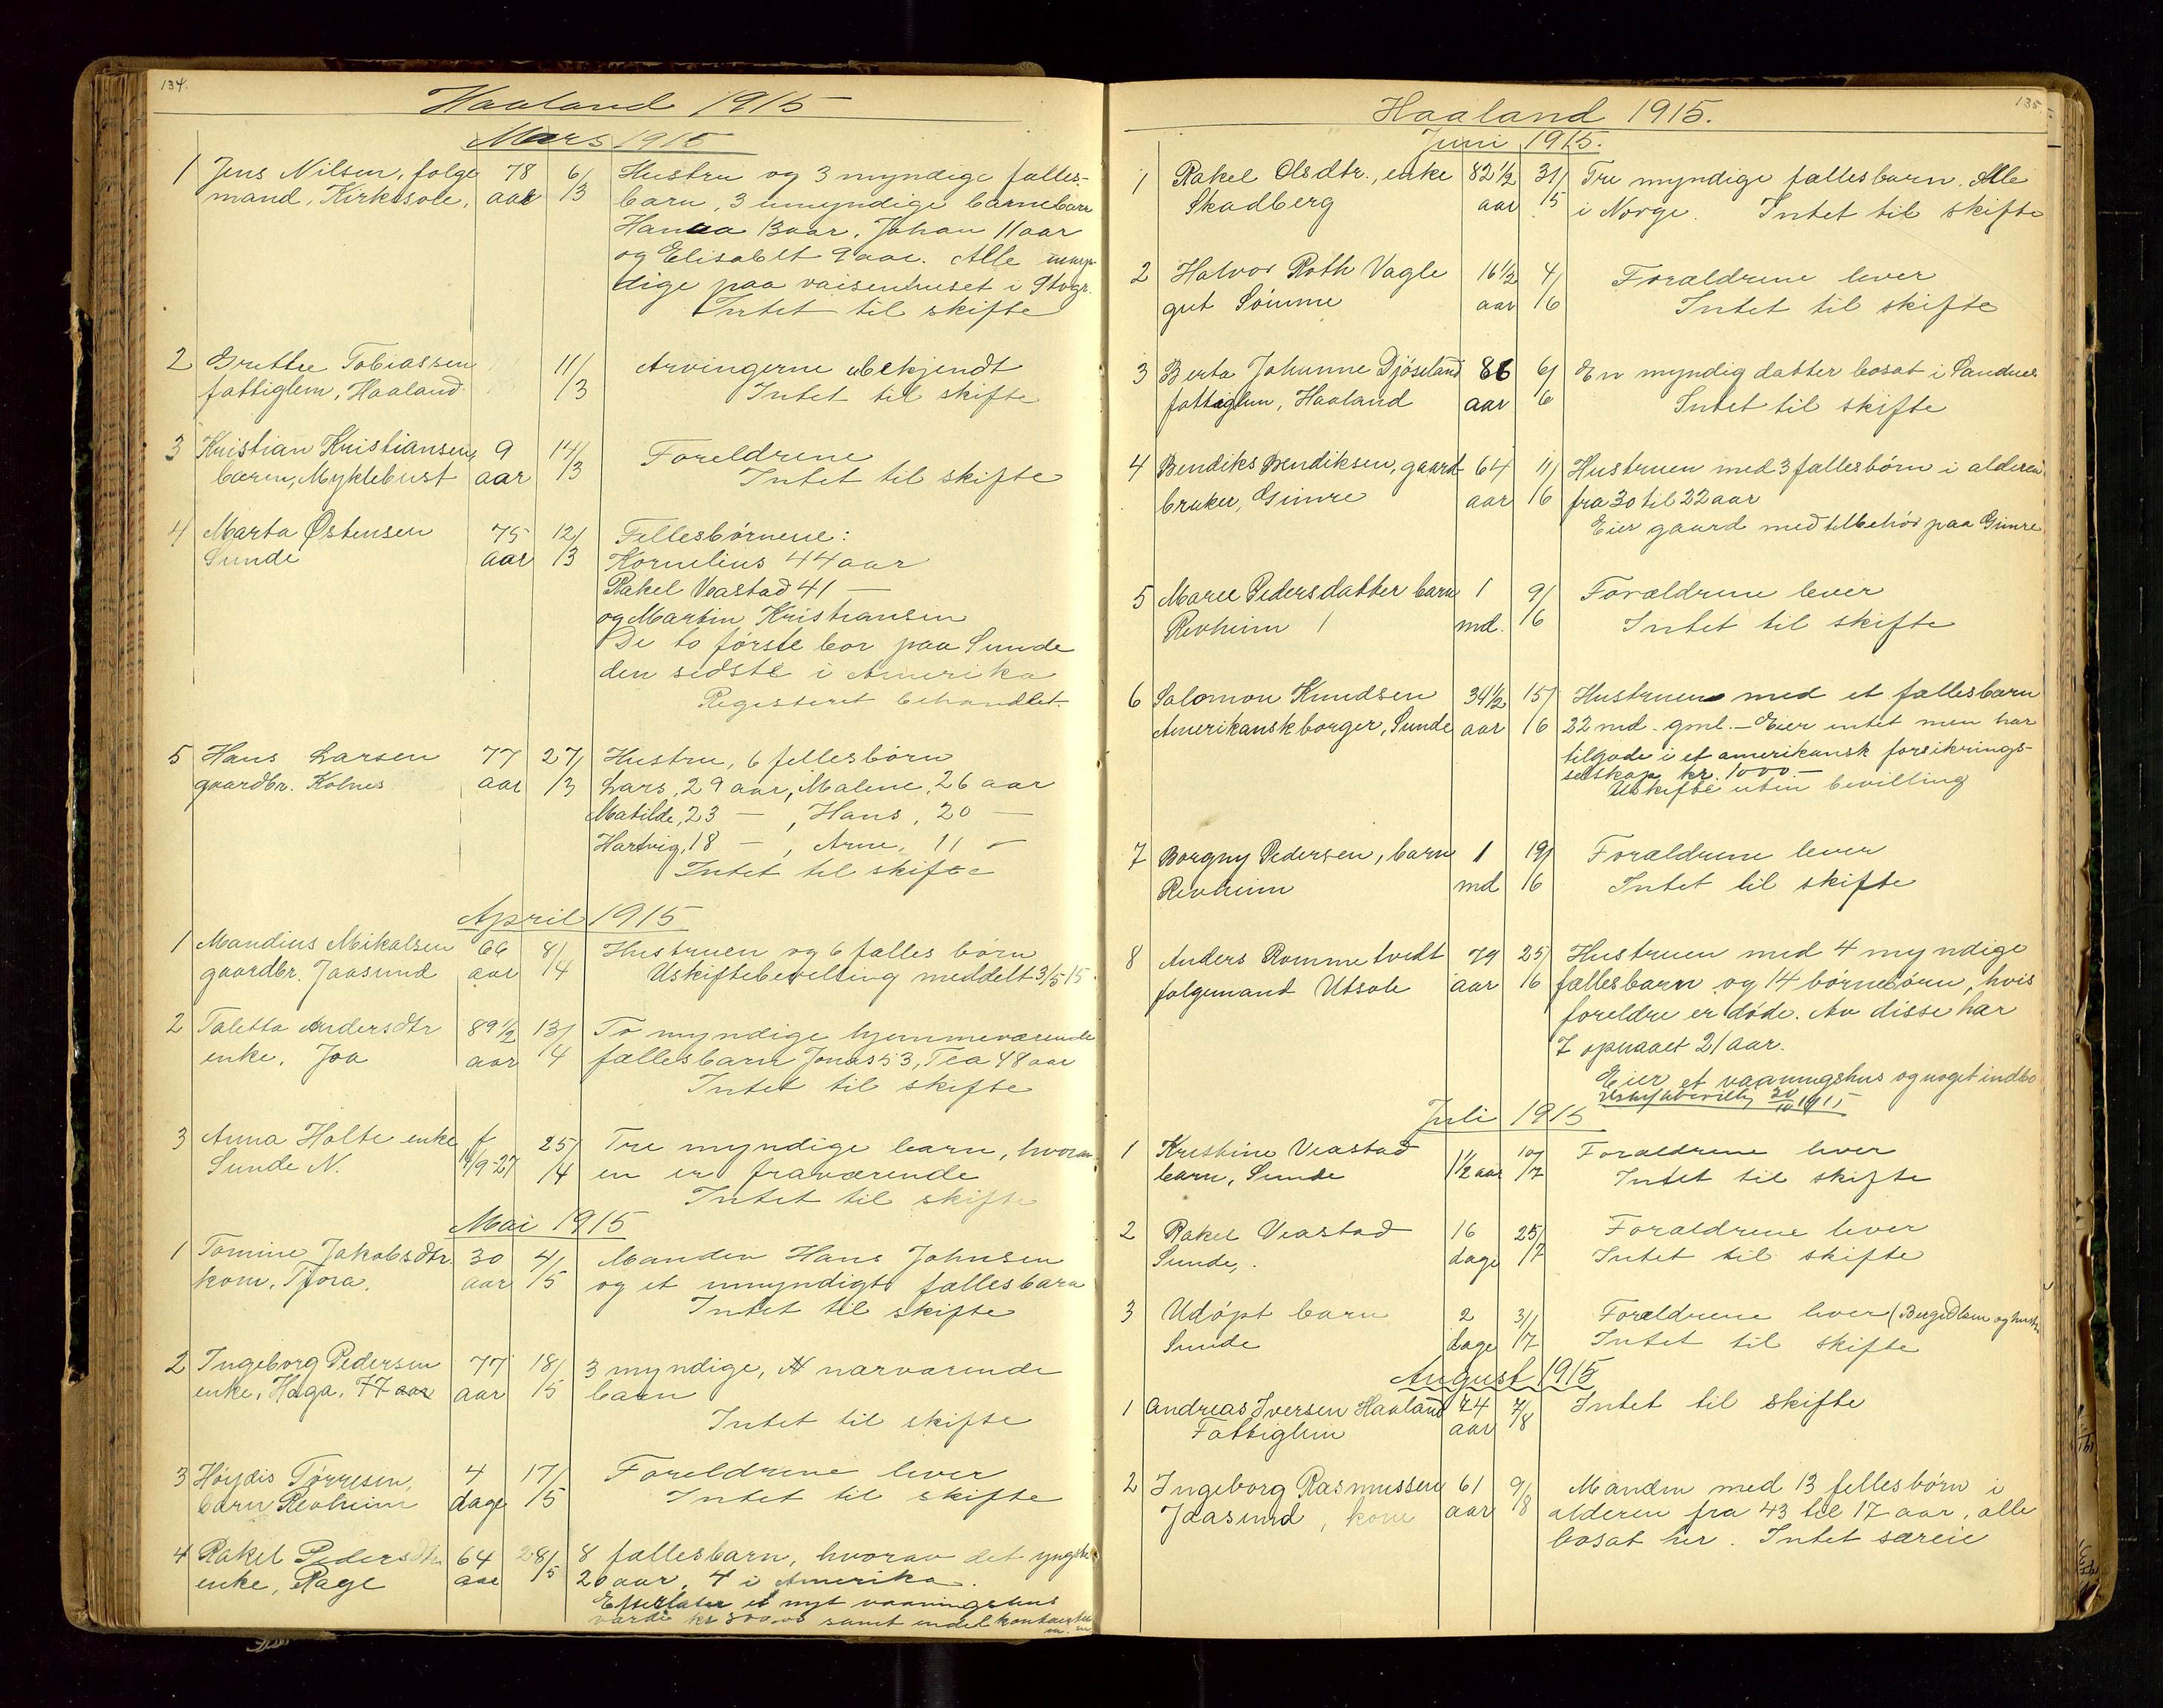 134.
Haaland 1915
Mars 1915
1 Jens Nilsen, følge 78 6/ Hustru og 3 myndige fælles-
mand, Kirkesole, aar /3 barn, 3 umyndige barnebarn
Hanna 13 aar, Johan 11 aar
og Elisabet 9 aar. Alle umyn-
dige paa vaisenhuset i Stvgr.
Intet til skifte
2 Tobiassen 11/ Arvingerne ubekjendt
fattiglem, Haaland /3 Intet til skifte
3 Kristian Kristiansen, 9 14/ Foreldrene
barn, Myklebust aar /3 Intet til skifte
4 Marta Østensen 75 12/ Fellesbørnene:
Sunde aar /3 Kornelius 44 aar
Rakel Veastad 41 —
og Martin Kristiansen
De to første bor paa Sunde
den sidste i Amerika
Registeret behandlet.
5 Hans Larsen 77 27/ Hustru, 6 fellesbørn
gaardbr. Kolnes aar /3 Lars, 29 aar, Malene, 26 aar
Matilde, 23 — , Hans, 20 —
Hartvig, 18 — , Arne, 11 —
Intet til skifte
April 1915
1 Mandius Mikalsen 66 8/ Hustruen og 6 fælles børn
gaardbr. Jaasund aar /4 Uskiftebevilling meddelt 3/5 15.
2 Taletta Andersdtr 89 1/2 13/ To myndige hjemmeværende
enke, Joa aar /4 fællesbarn Jonas 53, Tea 48 aar
Intet til skifte
3 Anna Holte enke f 25/ Tre myndige barn, hvorav
Sunde N. /9-27 /4 en er fraværende
Intet til skifte
Mai 1915
1 Tomine Jakobsdtr. 30 4/ Manden Hans Johnsen
kone, Tjora. aar /5 og et umyndigt fællesbarn
Intet til skifte
2 Ingeborg Pedersen 77 18/ 3 myndige, nærværende
enke, Haga, 77 aar aar /5 barn
Intet til skifte
3 Høydis Tørresen, 4 17/ Foreldrene lever
barn Revheim dage /5 Intet til skifte
4 Rakel Pedersdtr 64 28/ 8 fællesbarn, hvorav det yngste
enke, Rage aar /5 20 aar, 4 i Amerika.
Efterlater et nyt vaaningshus
værdi kr 300,00 samt endel
135
Haaland 1915.
Juni 1915.
1 Rakel Olsdtr., enke 82 1/2 31/ Tre myndige fællesbarn. Alle
Skadberg aar /5 i Norge. Intet til skifte
2 Halvor Roth Vagle 16 1/2 4/ Forældrene lever
gut Sömme aar /6 Intet til skifte
3 Berta Johanne Djöseland 86 6/ En myndig datter bosat i Sandnes
fattiglem, Haaland aar /6 Intet til skifte
4 Bendiks Bendiksen, gaard- 64 11/ Hustruen med 3 fællesbörn i alderen
bruker, Gimre aar /6 fra 30 til 22 aar
Eier gaard med tilbehör paa Gimre
5 Maree Pedersdatter barn 1 9/ Forældrene lever
Revheim md. /6 Intet til skifte
6 Salomon Knudsen 34 1/2 15/ Hustruen med et fællesbarn
Amerikansk borger, Sunde aar /6 22 md. gml. — Eier intet men har
tilgode i et amerikansk forsikrings-
selskap kr. 1000.—
Uskifte uten bevilling
7 Borgny Pedersen, barn 1 19/ Forældrene lever
Revheim md /6 Intet til skifte
8 Anders Rommetvedt 79 25/ Hustruen med 4 myndige
følgemand Utsole aar /6 fællesbarn og 14 börnebörn, hvis
foreldre er døde. Av disse har
7 opnaaet 21 aar.
Eier et vaaningshus og noget indbo
20/ 1915
Juli 1915
1 Kristine Veastad 1 1/2 aar 10/ Forældrene lever
barn, Sunde /7 Intet til skifte
2 Rakel Veastad 16 25/ Forældrene lever
Sunde, dage /7 Intet til skifte
3 Udöpt barn 2 31/ Forældrene lever
Sunde dage /7 Intet til skifte
August 1915
1 Andreas Iversen Haaland 74 7/8 Intet til skifte
Fattiglem aar
2 Ingeborg Rasmussen 61 9/8 Manden med 13 fellesbørn i
Jaasund, kone aar alderen fra 43 til 17 aar, alle
bosat her. Intet særeie